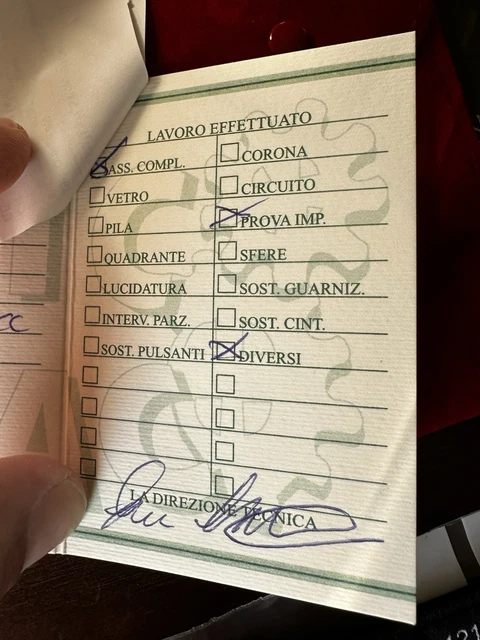 LAVORO EFFETTUATO
ASS. COMPL.
CORONA
VETRO
CIRCUITO
PILA
PROVA IMP.
QUADRANTE
SFERE
LUCIDATURA
SOST. GUARNIZ.
INTERV. PARZ.
SOST. CINT.
SOST. PULSANTI
DIVERSI
LA DIREZIONE TECNICA